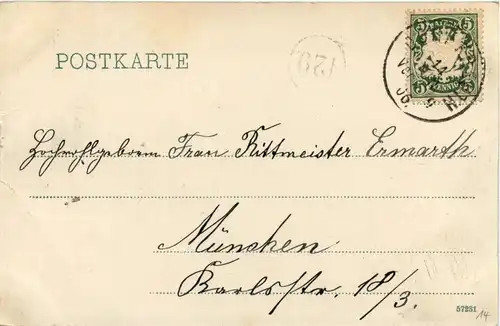 POSTKARTE
129
5 BAYERN 5
5 PFENNIG 5
Hochwohlgeboren Frau Rittmeister Ermarth
München
Karlsstr. 18/3.
57281
14